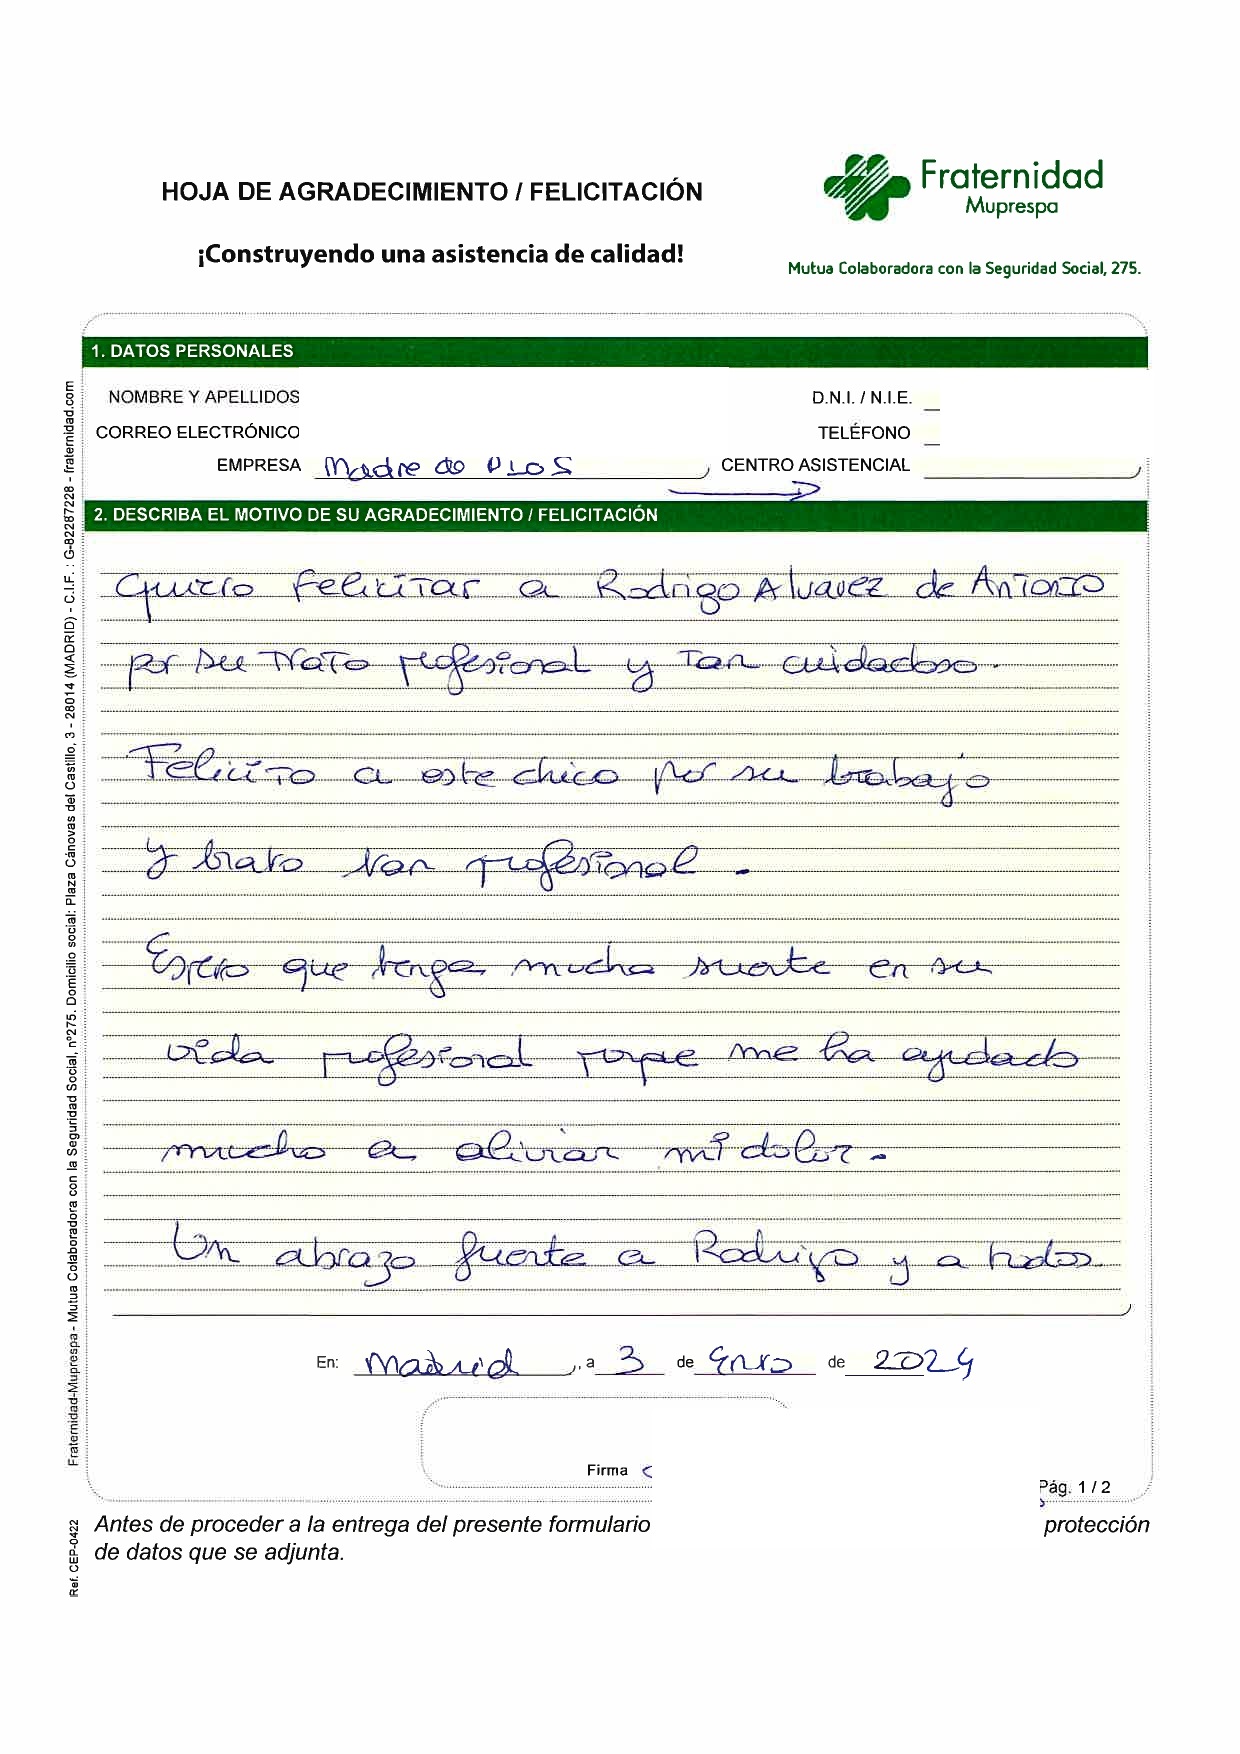 HOJA DE AGRADECIMIENTO / FELICITACIÓN
Fraternidad
Muprespa
¡Construyendo una asistencia de calidad!
Mutua Colaboradora con la Seguridad Social, 275.
1. DATOS PERSONALES
NOMBRE Y APELLIDOS D.N.I. / N.I.E.
CORREO ELECTRÓNICO TELÉFONO
EMPRESA Madre de DIOS CENTRO ASISTENCIAL
2. DESCRIBA EL MOTIVO DE SU AGRADECIMIENTO / FELICITACIÓN
Quiero felicitar a Rodrigo Alvarez de Antonio
por su trato profesional y tan cuidadoso.
Felicito a este chico por su trabajo
y trato tan profesional.
Espero que tenga mucha suerte en su
vida profesional porque me ha ayudado
mucho a aliviar mi dolor.
Un abrazo fuerte a Rodrigo y a todos
En: Madrid, a 3 de Enero de 2024
Firma
Pág. 1 / 2
Antes de proceder a la entrega del presente formulario protección
de datos que se adjunta.
Fraternidad-Muprespa - Mutua Colaboradora con la Seguridad Social, nº275. Domicilio social: Plaza Cánovas del Castillo, 3 - 28014 (MADRID) - C.I.F. : G-82287228 - fraternidad.com
Ref. CEP-0422